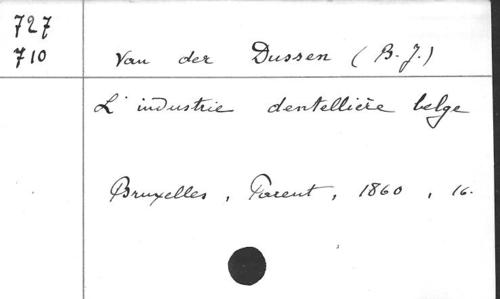 727
710
Van der Dussen (B.J.)
L'industrie dentellière belge
Bruxelles, Parent, 1860, 16.